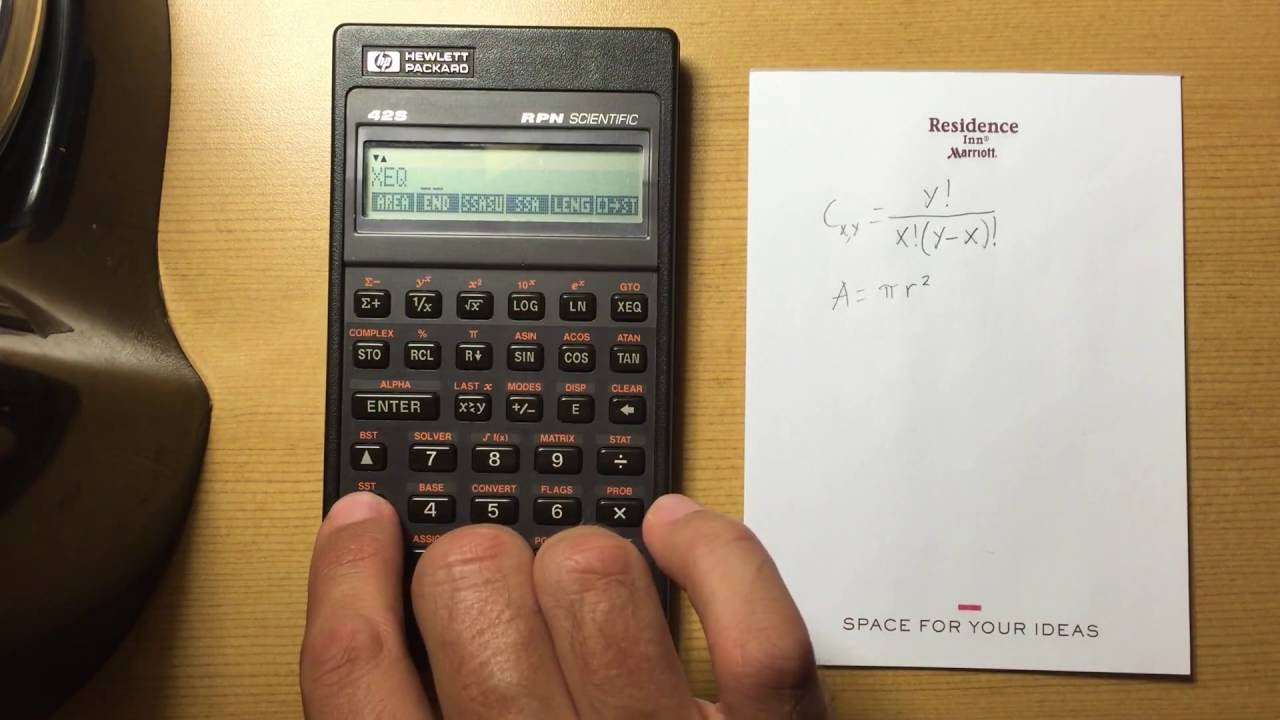 HEWLETT
PACKARD
hp
42S
RPN SCIENTIFIC
▼▲
XEQ __
AREA END SSASU SSA LENG []→ST
Σ− yˣ x² 10ˣ eˣ GTO
Σ+ 1/x √x LOG LN XEQ
COMPLEX % π ASIN ACOS ATAN
STO RCL R↓ SIN COS TAN
ALPHA LAST x MODES DISP CLEAR
ENTER x≷y +/− E ←
BST SOLVER ∫f(x) MATRIX STAT
▲ 7 8 9 ÷
SST BASE CONVERT FLAGS PROB
4 5 6 ×
Residence
Inn®
Marriott.
C x,y = y! / x!(y−x)!
A = πr²
SPACE FOR YOUR IDEAS